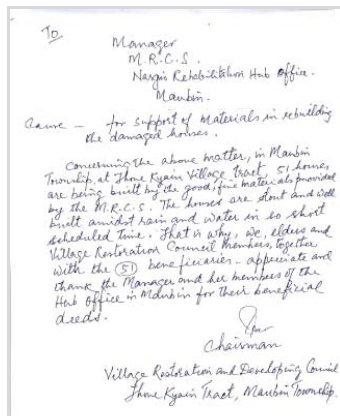 To
Manager
M.R.C.S.
Nargis Rehabilitation Hub Office.
Maubin.
Cause — for support of materials in rebuilding
the damaged houses.
Concerning the above matter, in Maubin
Township, at Thone Kyain Village Tract, 51 houses
are being built by the good, fine materials provided
by the M.R.C.S. The houses are stout and well
built amidst rain and water in so short
scheduled time. That is why, we, elders and
Village Restoration Council members, together
with the 51 beneficiaries - appreciate and
thank the Manager and her members of the
Hub Office in Maubin for their beneficial
deeds.
Chairman
Village Restoration and Developing Council
Thone Kyain Tract, Maubin Township.